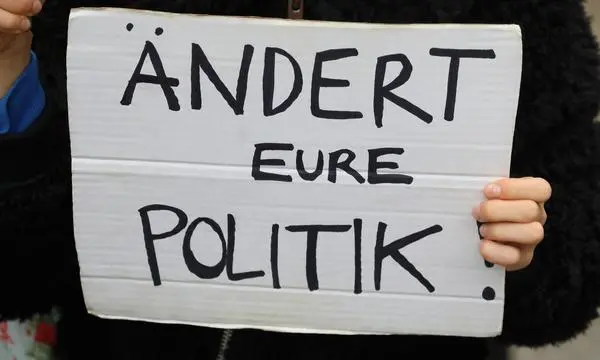 ÄNDERT
EURE
POLITIK!